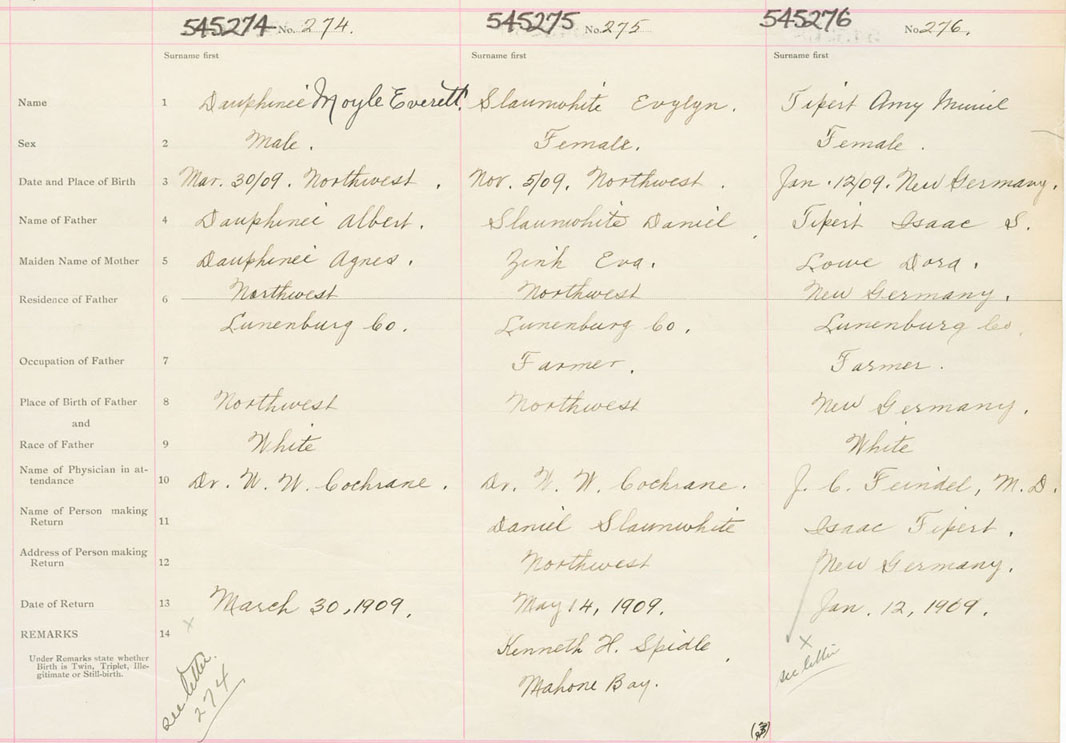 545274 No. 274. 545275 No. 275 545276 No. 276.
Surname first Surname first Surname first
Name 1 Dauphineé Moyle Everett. Slaunwhite Evylyn. Tipert Amy Muriel
Sex 2 Male. Female. Female.
Date and Place of Birth 3 Mar. 30/09. Northwest. Nov. 5/09. Northwest. Jan. 12/09. New Germany.
Name of Father 4 Dauphineé Albert. Slaunwhite Daniel Tipert Isaac S.
Maiden Name of Mother 5 Dauphineé Agnes. Zink Eva. Lowe Dora.
Residence of Father 6 Northwest Northwest New Germany.
Lunenburg Co. Lunenburg Co. Lunenburg Co.
Occupation of Father 7 Farmer. Farmer.
Place of Birth of Father 8 Northwest Northwest New Germany.
and
Race of Father 9 White White
Name of Physician in at-
tendance 10 Dr. W. W. Cochrane. Dr. W. W. Cochrane. J. C. Feindel, M.D.
Name of Person making
Return 11 Daniel Slaunwhite Isaac Tipert.
Address of Person making
Return 12 Northwest New Germany.
Date of Return 13 March 30, 1909. May 14, 1909. Jan. 12, 1909.
REMARKS 14 x Kenneth H. Spidle, x
Under Remarks state whether
Birth is Twin, Triplet, Ille-
gitimate or Still-birth.
see letter. Mahone Bay. see letter
274